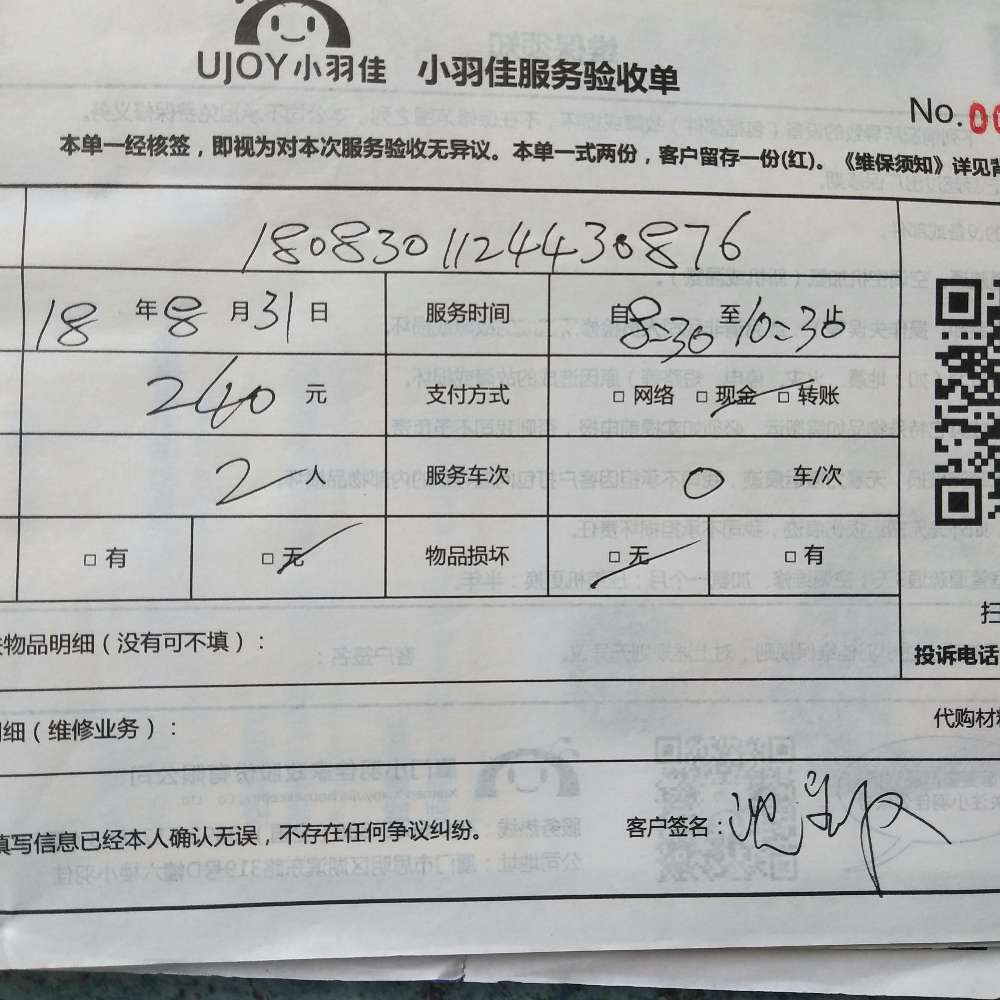 UJOY小羽佳 小羽佳服务验收单
No.00
本单一经核签，即视为对本次服务验收无异议。本单一式两份，客户留存一份(红)。《维保须知》详见背
1808301124430876
18 年 8 月 31 日 服务时间 自 8:30 至 10:30 止
240 元 支付方式 □ 网络 □ 现金 □ 转账
2 人 服务车次 0 车/次
□ 有 □ 无 物品损坏 □ 无 □ 有
物品明细（没有可不填）：
扫
投诉电话
细（维修业务）：
代购材料
填写信息已经本人确认无误，不存在任何争议纠纷。 客户签名：